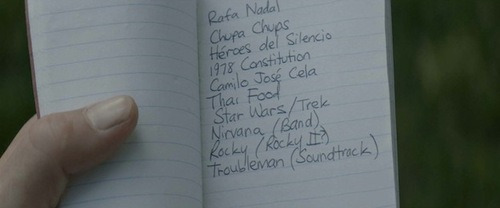 Rafa Nadal
Chupa Chups
Héroes del Silencio
1978 Constitution
Camilo José Cela
Thai Food
Star Wars/Trek
Nirvana (Band)
Rocky (Rocky II?)
Troubleman (Soundtrack)